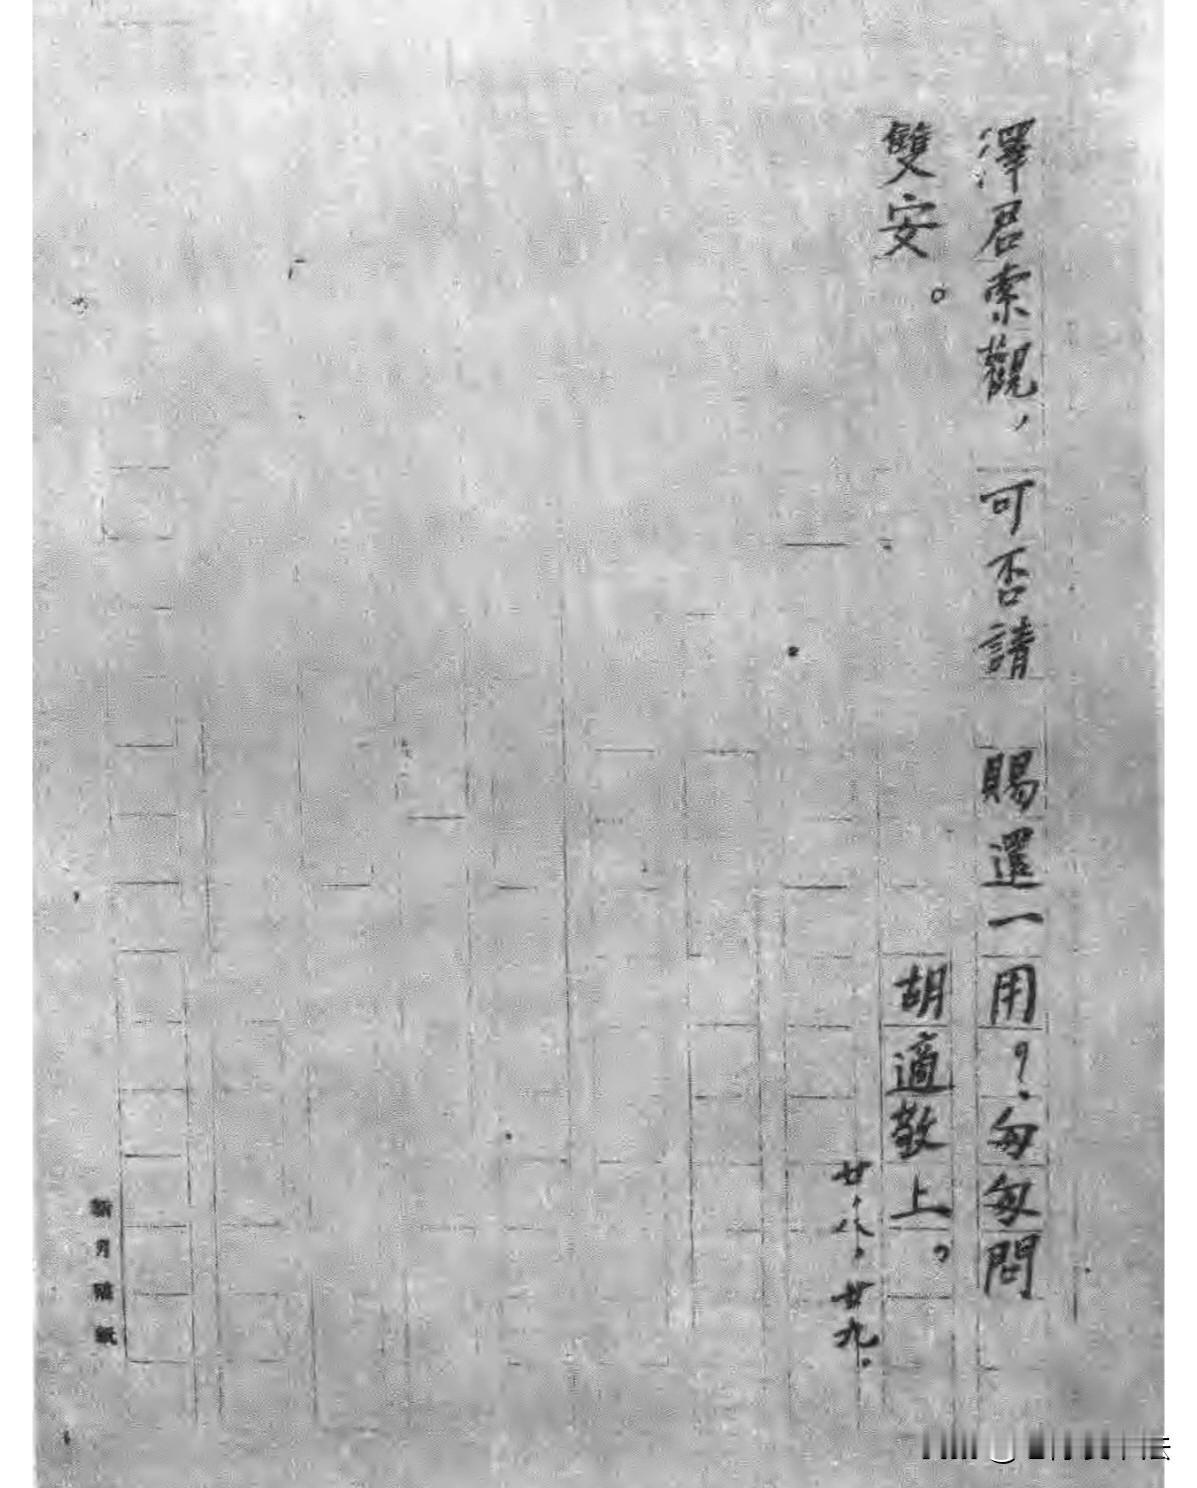 澤君索觀,可否請 賜還一用?匆匆問
雙安。
胡適敬上。
廿,八,廿九。
新月稿紙